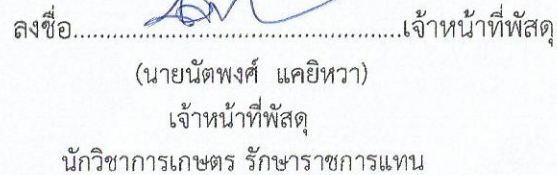 ลงชื่อ................................................เจ้าหน้าที่พัสดุ
(นายนัตพงศ์ แคยิหวา)
เจ้าหน้าที่พัสดุ
นักวิชาการเกษตร รักษาราชการแทน